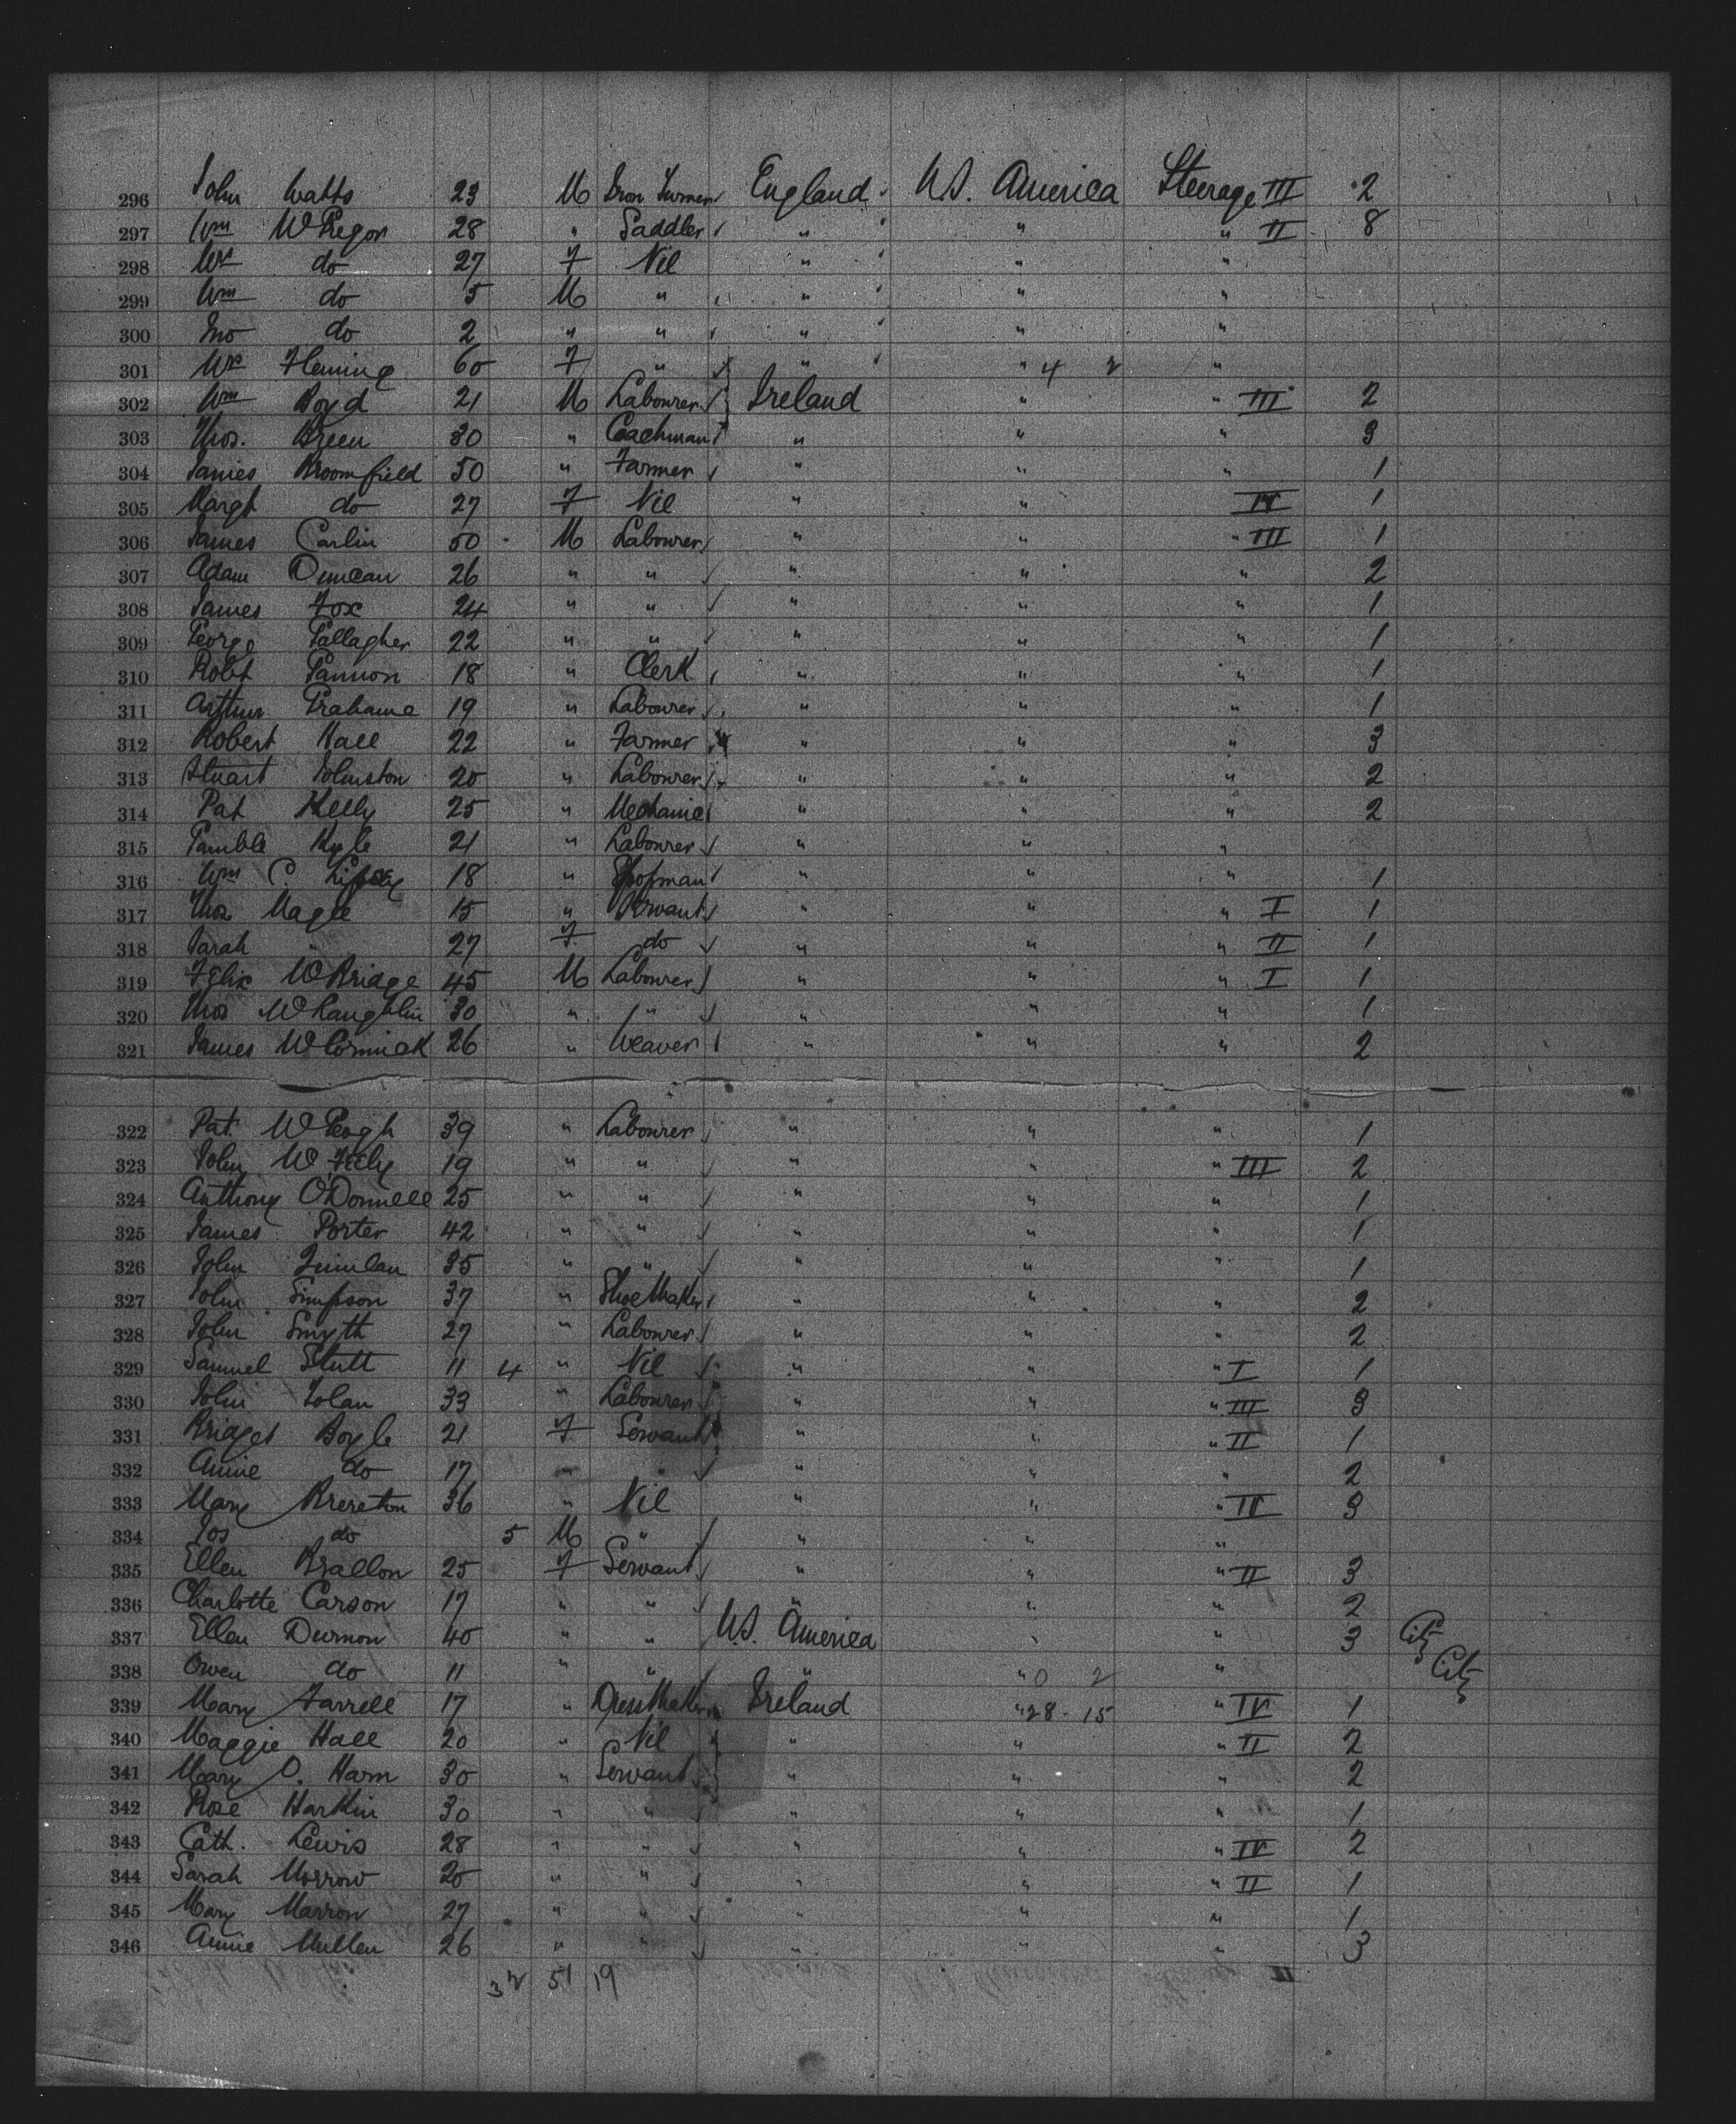 296 John Watts 23 M Iron Turner England U.S. America Steerage III 2
297 Wm McGregor 28 " Saddler " " " II 8
298 Mrs do 27 F Nil " " "
299 Wm do 5 M " " " "
300 Jno do 2 " " " " "
301 Mrs Fleming 60 F " " " 4 2 "
302 Wm Boyd 21 M Labourer Ireland " " III 2
303 Thos. Breen 30 " Coachman " " " 3
304 James Broomfield 50 " Farmer " " " 1
305 Margt do 27 F Nil " " IV 1
306 James Carlin 50 M Labourer " " " III 1
307 Adam Duncan 26 " " " " " 2
308 James Fox 24 " " " " " 1
309 George Gallagher 22 " " " " " 1
310 Robt Gannon 18 " Clerk " " " 1
311 Arthur Grahame 19 " Labourer " " " 1
312 Robert Hall 22 " Farmer " " " 3
313 Stuart Johnston 20 " Labourer " " " 2
314 Pat Kelly 25 " Mechanic " " " 2
315 Gamble Kyle 21 " Labourer " " "
316 Wm C. 18 " Shopman " " " 1
317 Thos Magee 15 " Servant " " " I 1
318 Sarah " 27 F do " " " II 1
319 Felix McBridge 45 M Labourer " " " I 1
320 Thos McLaughlin 30 " " " " " 1
321 James McCormick 26 " Weaver " " " 2
322 Pat McGeogh 39 " Labourer " " " 1
323 John McFeely 19 " " " " " III 2
324 Anthony O'Donnell 25 " " " " " 1
325 James Porter 42 " " " " " 1
326 John Quinlan 35 " " " " 1
327 John Simpson 37 " ShoeMaker " " " 2
328 John Smyth 27 " Labourer " " " 2
329 Samuel Stutt 11 4 " Nil " " " I 1
330 John Tolan 33 " Labourer " " " III 3
331 Bridget Boyle 21 F Servant " " " II 1
332 Annie do 17 " " " " 2
333 Mary Brereton 36 " Nil " " " IV 3
334 Jos do 5 M " " " "
335 Ellen Brallon 25 F Servant " " " II 3
336 Charlotte Carson 17 " " " " " 2
337 Ellen Durnon 40 " " U.S. America " " 3 City
338 Owen do 11 " " " " 0 2 " City
339 Mary Farrell 17 " DressMaker Ireland " 28 - 15 " IV 1
340 Maggie Hall 20 " Nil " " " II 2
341 Mary O. Harn 30 " Servant " " " 2
342 Rose Harkin 30 " " " " " 1
343 Cath. Lewis 28 " " " " " IV 2
344 Sarah Morrow 20 " " " " " II 1
345 Mary Marron 27 " " " " " 1
346 Annie Mullen 26 " " " " " 3
32 51 19